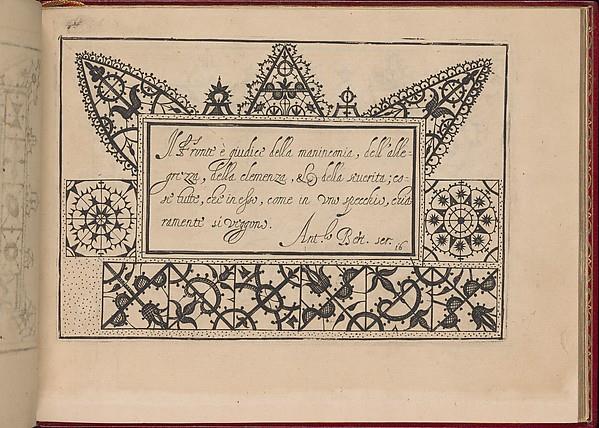 Il Fronte è giudice della maninconia, dell'alle-
grezza, della clemenza, & della seuerità; es-
se tutte, che in esso, come in vno specchio, chia
ramente si veggono.
Ant.º Bch. scr.
16